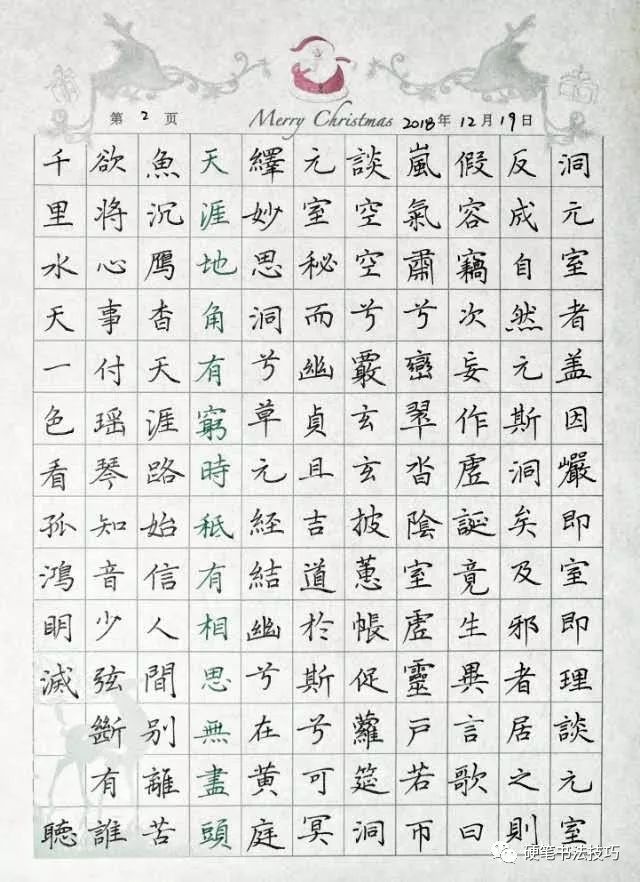 第 2 页
Merry Christmas
2018年12月19日
洞元室者盖因巗即室即理談元室
反成自然元斯洞矣及邪者居之則
假容竊次妄作虛誕竟生異言歌曰
嵐氣肅兮巒翠沓陰室虛靈戶若帀
談空空兮覈玄玄披蕙帳促蘿筵洞
元室秘而幽貞且吉道於斯兮可冥
繹妙思洞兮草元經結幽兮在黄庭
天涯地角有窮時秪有相思無盡頭
魚沉鴈杳天涯路始信人間别離苦
欲將心事付瑶琴知音少弦斷有誰
千里水天一色看孤鴻明滅 聽
硬笔书法技巧